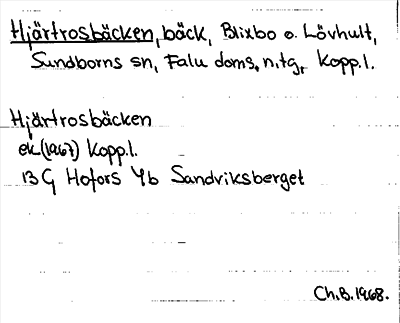 Hjärtrosbäcken, bäck, Blixbo o. Lövhult,
Sundborns sn, Falu doms. n. tg, Kopp.l.
Hjärtrosbäcken
ek (1967) Kopp.l.
13 G Hofors 4b Sandviksberget
Ch.B. 1968.